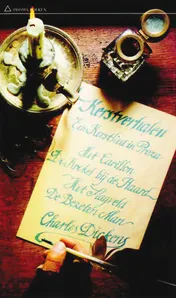 PRISMA KLASSIEKEN
Kerstverhalen
Een Kerstlied in Proza
Het Carillon
De Krekel bij de Haard
Het Slagveld
De Bezeten Man
Charles Dickens